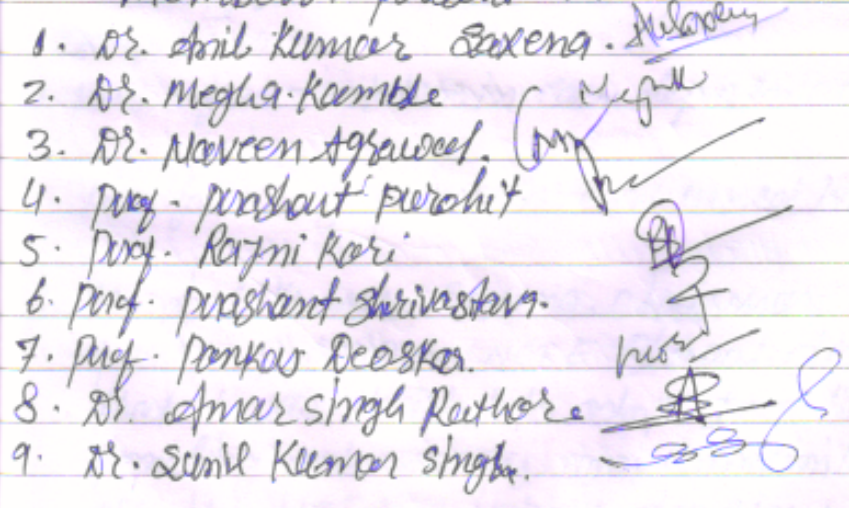 Members present
1. Dr. Anil Kumar Saxena.
2. Dr. Megha Kamble
3. Dr. Naveen Agrawal.
4. Prof. Prashant Purohit
5. Prof. Rajni Kori
6. Prof. Prashant Shrivastava.
7. Prof. Pankaj Deoskar.
8. Dr. Amar Singh Rathore
9. Dr. Sunil Kumar Singh.